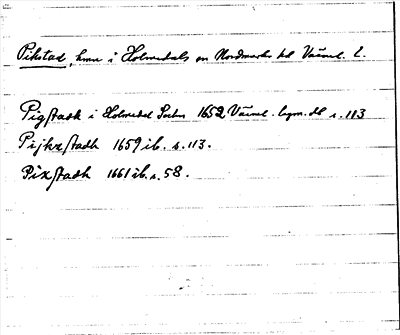 Pikstad, hmn i Holmedals sn Nordmarks hd Värml. l.
Pigstadh i Holmedal Sochn 1652 Värml. lagm. db s. 113
Pijkstadh 1659 ib. s. 113.
Pixstadh 1661 ib. s. 58.